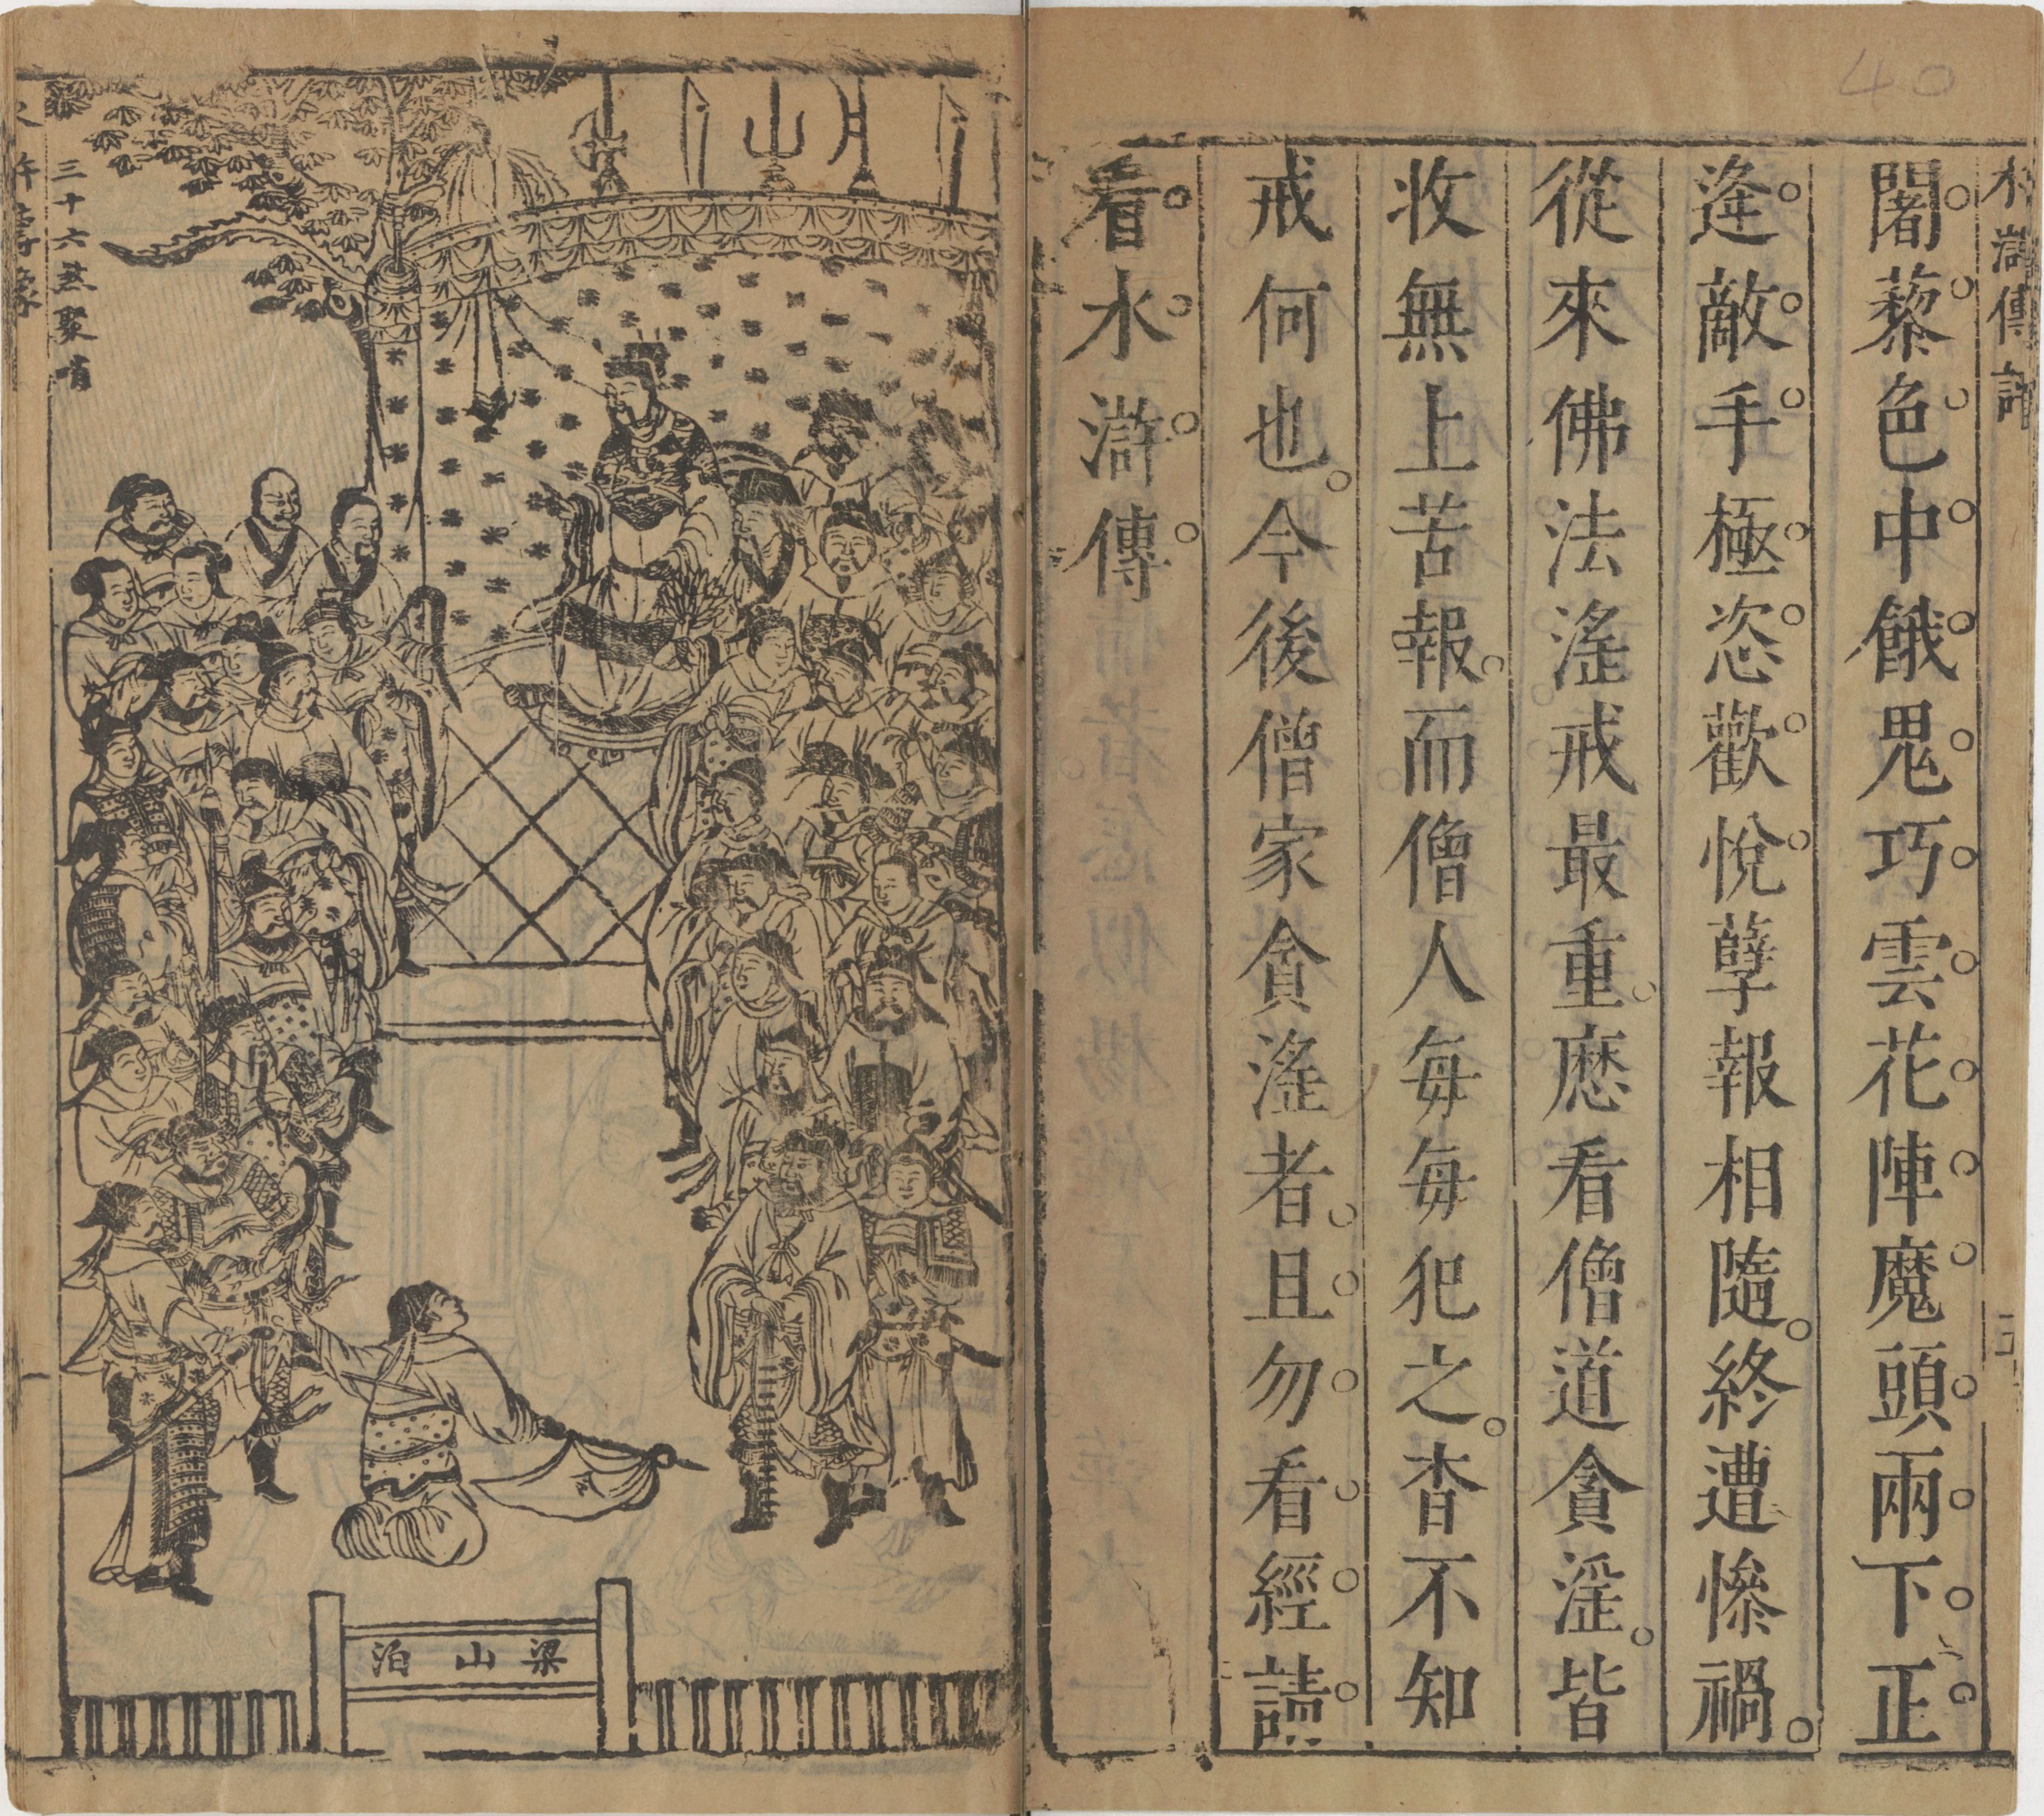 闍藜色中餓鬼巧雲花陣魔頭兩下正
逢敵手極恣歡悅孽報相隨終遭慘禍
從來佛法滛戒最重應看僧道貪滛皆
收無上苦報而僧人每每犯之杳不知
戒何也今後僧家貪滛者且勿看經請
看水滸傳
水滸傳評
40
三十六𠅤聚哨
梁山泊
一